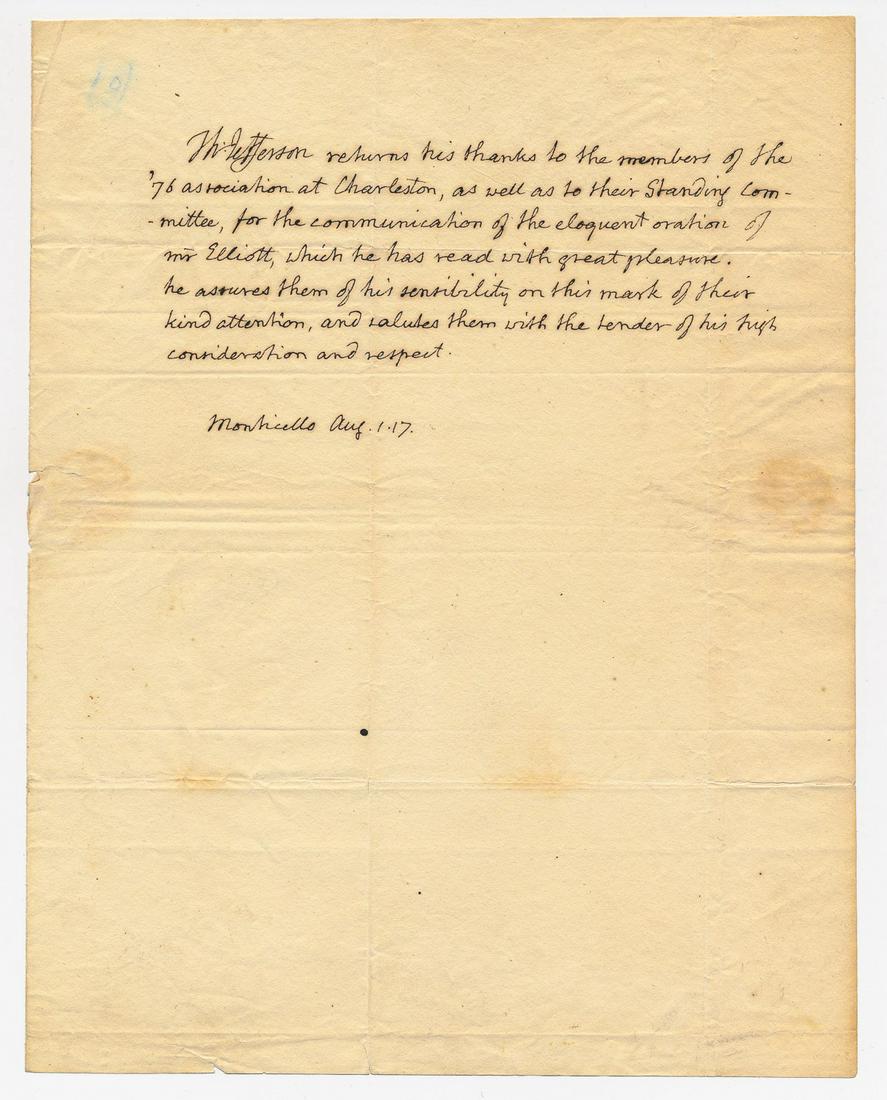 Th: Jefferson returns his thanks to the members of the
'76 association at Charleston, as well as to their Standing Com-
-mittee, for the communication of the eloquent oration of
mr Elliott, which he has read with great pleasure.
he assures them of his sensibility on this mark of their
kind attention, and salutes them with the tender of his high
consideration and respect.
Monticello Aug. 1. 17.